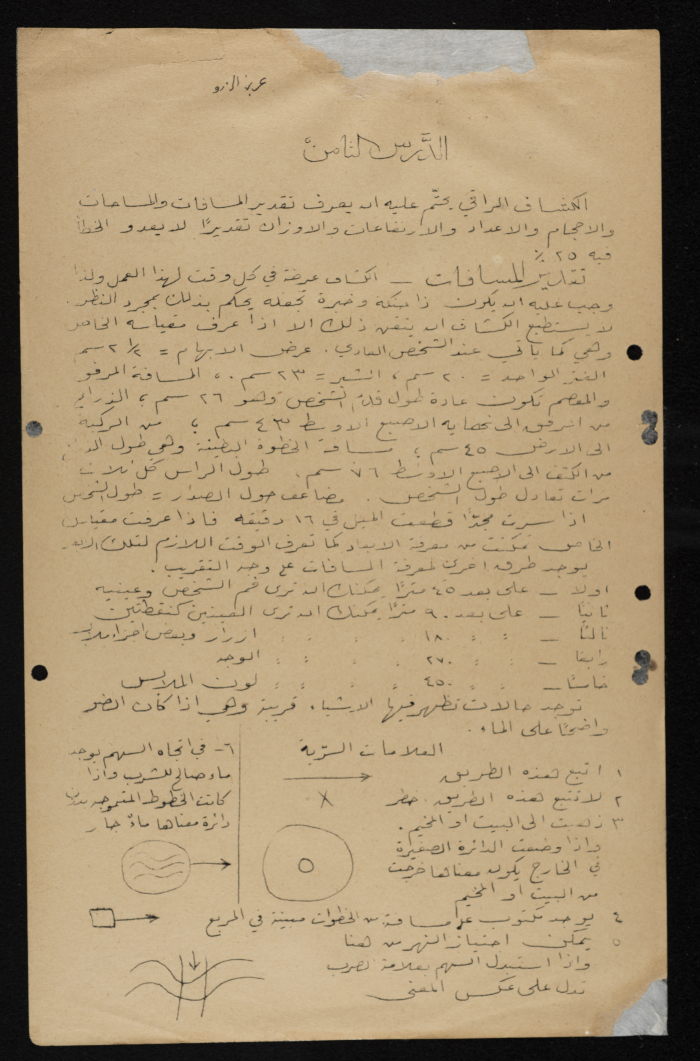 الدَّرس الثامن
الكشاف الراقي يحتّم عليه ان يعرف تقدير المسافات والمساحات
والاحجام والاعداد والارتفاعات والاوزان تقديرًا لا يعدو الخطأ
فيه ٢٥ ٪
تقدير المسافات — الكشاف عرضة في كل وقت لهذا العمل ولذا
وجب عليه ان يكون ذا حنكة وخبرة تجعله يحكم بذلك بمجرد النظر.
لا يستطيع الكشاف ان يتقن ذلك الا اذا عرف مقياسه الخاص
وهي كما يأتي عند الشخص العادي. عرض الابهام = ٢ ١/٢ سم
الفتر الواحد = ٢٠ سم، الشبر = ٢٣ سم.، المسافة المرفق
والمعصم تكون عادة طول قدم الشخص وهو ٢٦ سم؛ الذراع
من المرفق الى نهاية الاصبع الاوسط ٤٣ سم؛ من الركبة
الى الارض ٤٥ سم؛ مسافة الخطوة البطيئة وهي طول
من الكتف الى الاصبع الاوسط ٧٦ سم. طول الراس كل ثلاث
مرات تعادل طول الشخص. مضاعف حول الصدر = طول الشخص
اذا سرت مجدًّا قطعت الميل في ١٦ دقيقة فاذا عرفت مقياسك
الخاص تمكنت من معرفة الابعاد كما تعرف الوقت اللازم لتلك
يوجد طرق اخرى لمعرفة المسافات على وجه التقريب.
اولا — على بعد ٤٥ مترًا يمكنك ان ترى فم الشخص وعينيه
ثانيًا — على بعد ٩٠ مترًا يمكنك ان ترى العينين كنقطتين
ثالثًا — " " ١٨٠ " " " " ازرار وبعض اجزاء ملابسه
رابعًا — " " ٢٧٠ " " " " الوجه
خامسًا — " " ٤٥٠ " " " " لون الملابس
توجد حالات تظهر فيها الاشياء قريبة وهي اذا كان الضوء
واضحًا على الماء.
العلامات السرّية
١ اتبع هذه الطريق
٢ لا تتبع هذه الطريق. خطر
٣ ذهبت الى البيت او المخيم.
واذا وضعت الدائرة الصغيرة
في الخارج يكون معناها خرجت
من البيت او المخيم
٤ يوجد مكتوب على مسافة من الخطوات مبينة في المربع
٥ يمكن اجتياز النهر من هنا
واذا استبدل السهم بعلامة الضرب
تدل على عكس المعنى
٦- في اتجاه السهم يوجد
ماء صالح للشرب واذا
كانت الخطوط المتموجة بدون
دائرة معناها ماءٌ جار